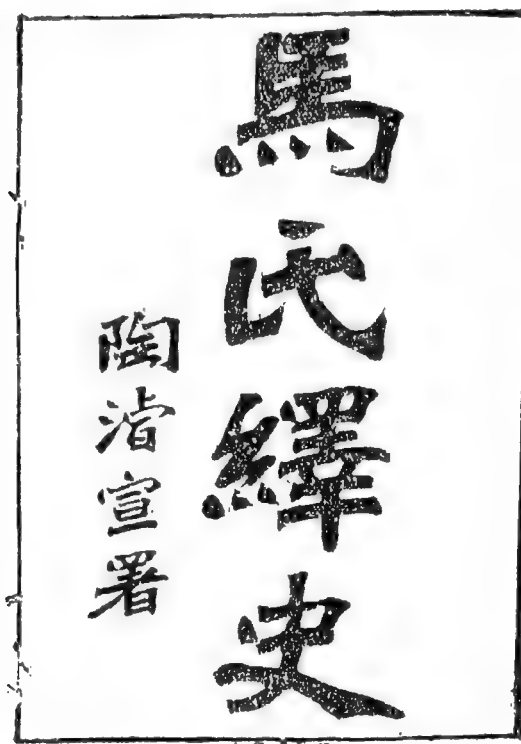 馬氏繹史
陶濬宣署